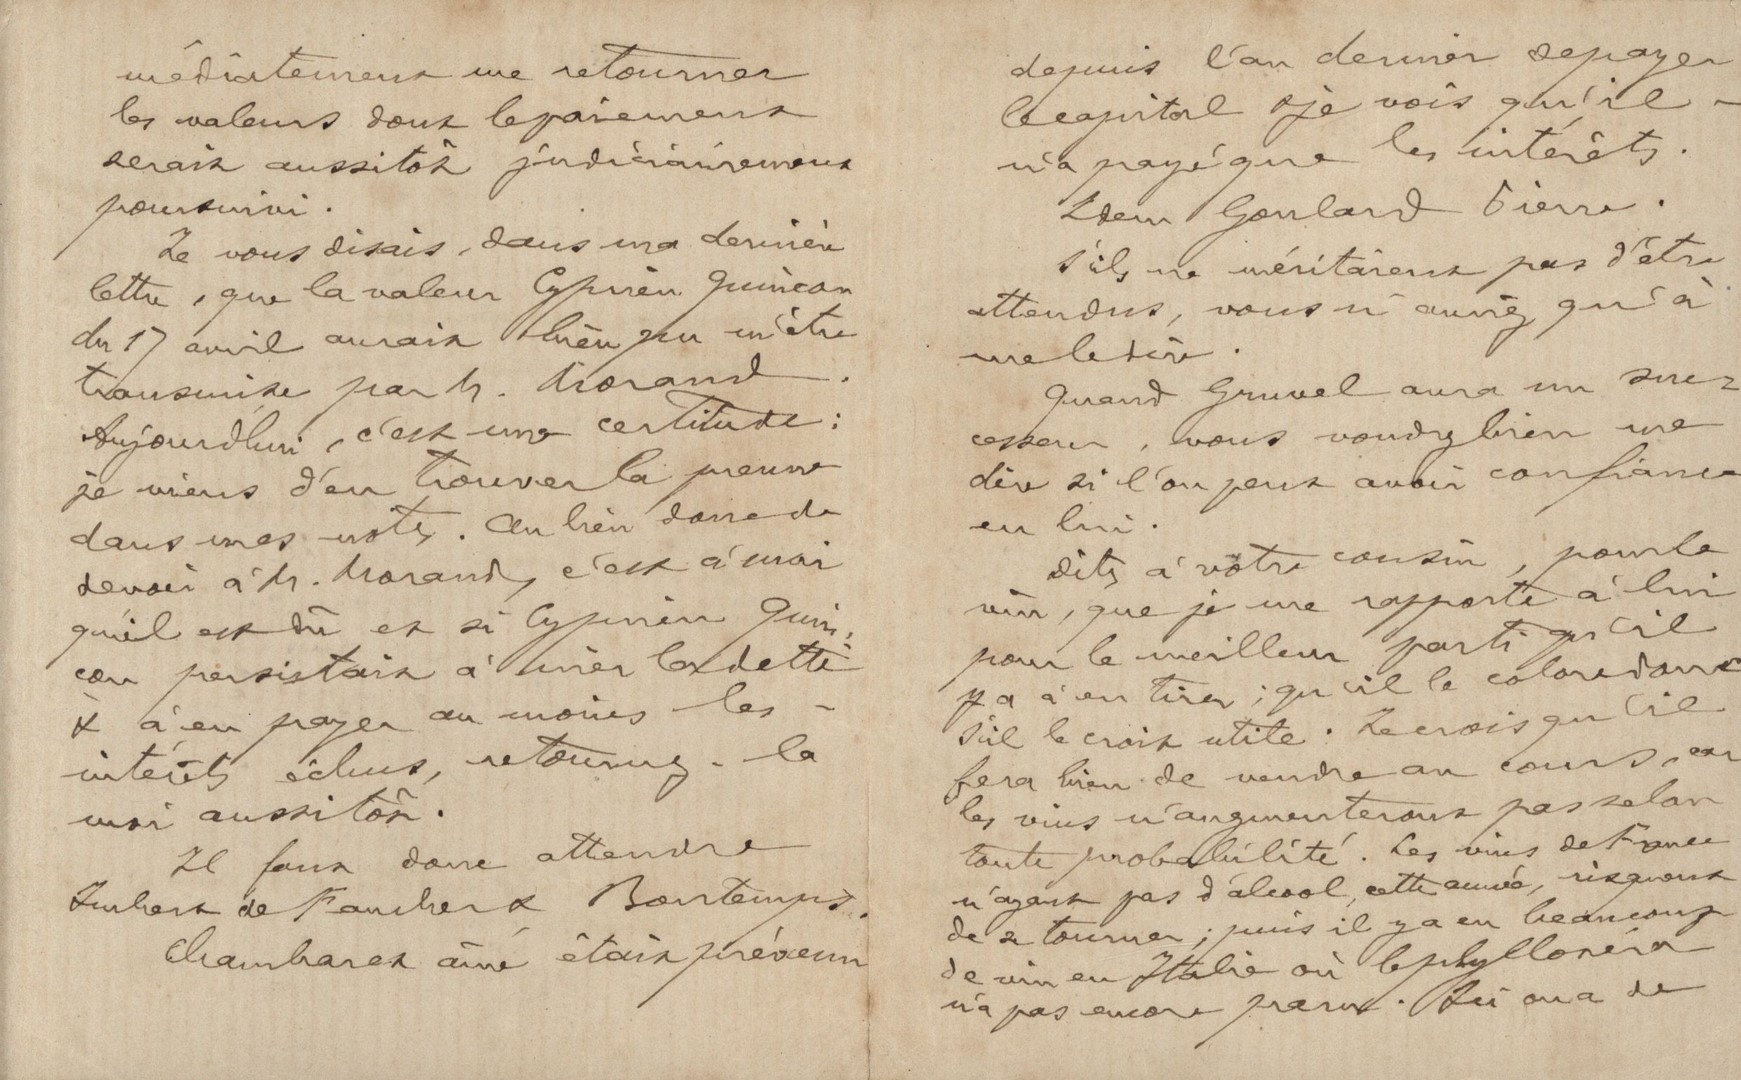 médiatement me retourner
les valeurs dont le paiement
serait aussitôt judiciairement
poursuivi.
Je vous disais, dans ma dernière
lettre, que la valeur Cyprien Guinion
du 17 avril aurait bien pu m'être
transmise par M. Morand.
Aujourd'hui, c'est une certitude :
je viens d'en trouver la preuve
dans mes notes. Au lieu donc de
devoir à M. Morand, c'est à moi
qu'il est dû et si Cyprien Guin-
con persistait à nier la dette
& à en payer au moins les -
intérêts échus, retournez - la
moi aussitôt.
Il faut donc attendre
Imbert de Fauchert Bontemps.
Chambaret aîné était prévenu
depuis l'an dernier de payer
le capital & je vois qu'il -
n'a payé que les intérêts.
Idem Goulard Pierre.
S'ils ne méritaient pas d'être
attendus, vous n'auriez qu'à
me le dire.
Quand Gruvel aura un suc-
cesseur, vous voudrez bien me
dire si l'on peut avoir confiance
en lui.
Dites à votre cousin, pour le
vin, que je me rapporte à lui
pour le meilleur parti qu'il
y a à en tirer ; qu'il le colore donc
s'il le croit utile. Je crois qu'il
fera bien de vendre au cours, car
les vins n'augmenteront pas selon
toute probabilité. Les vins de France
n'ayant pas d'alcool, cette année, risquent
de se tourner ; puis il y a eu beaucoup
de vin en Italie où le phylloxéra
n'a pas encore paru. Ici on a de